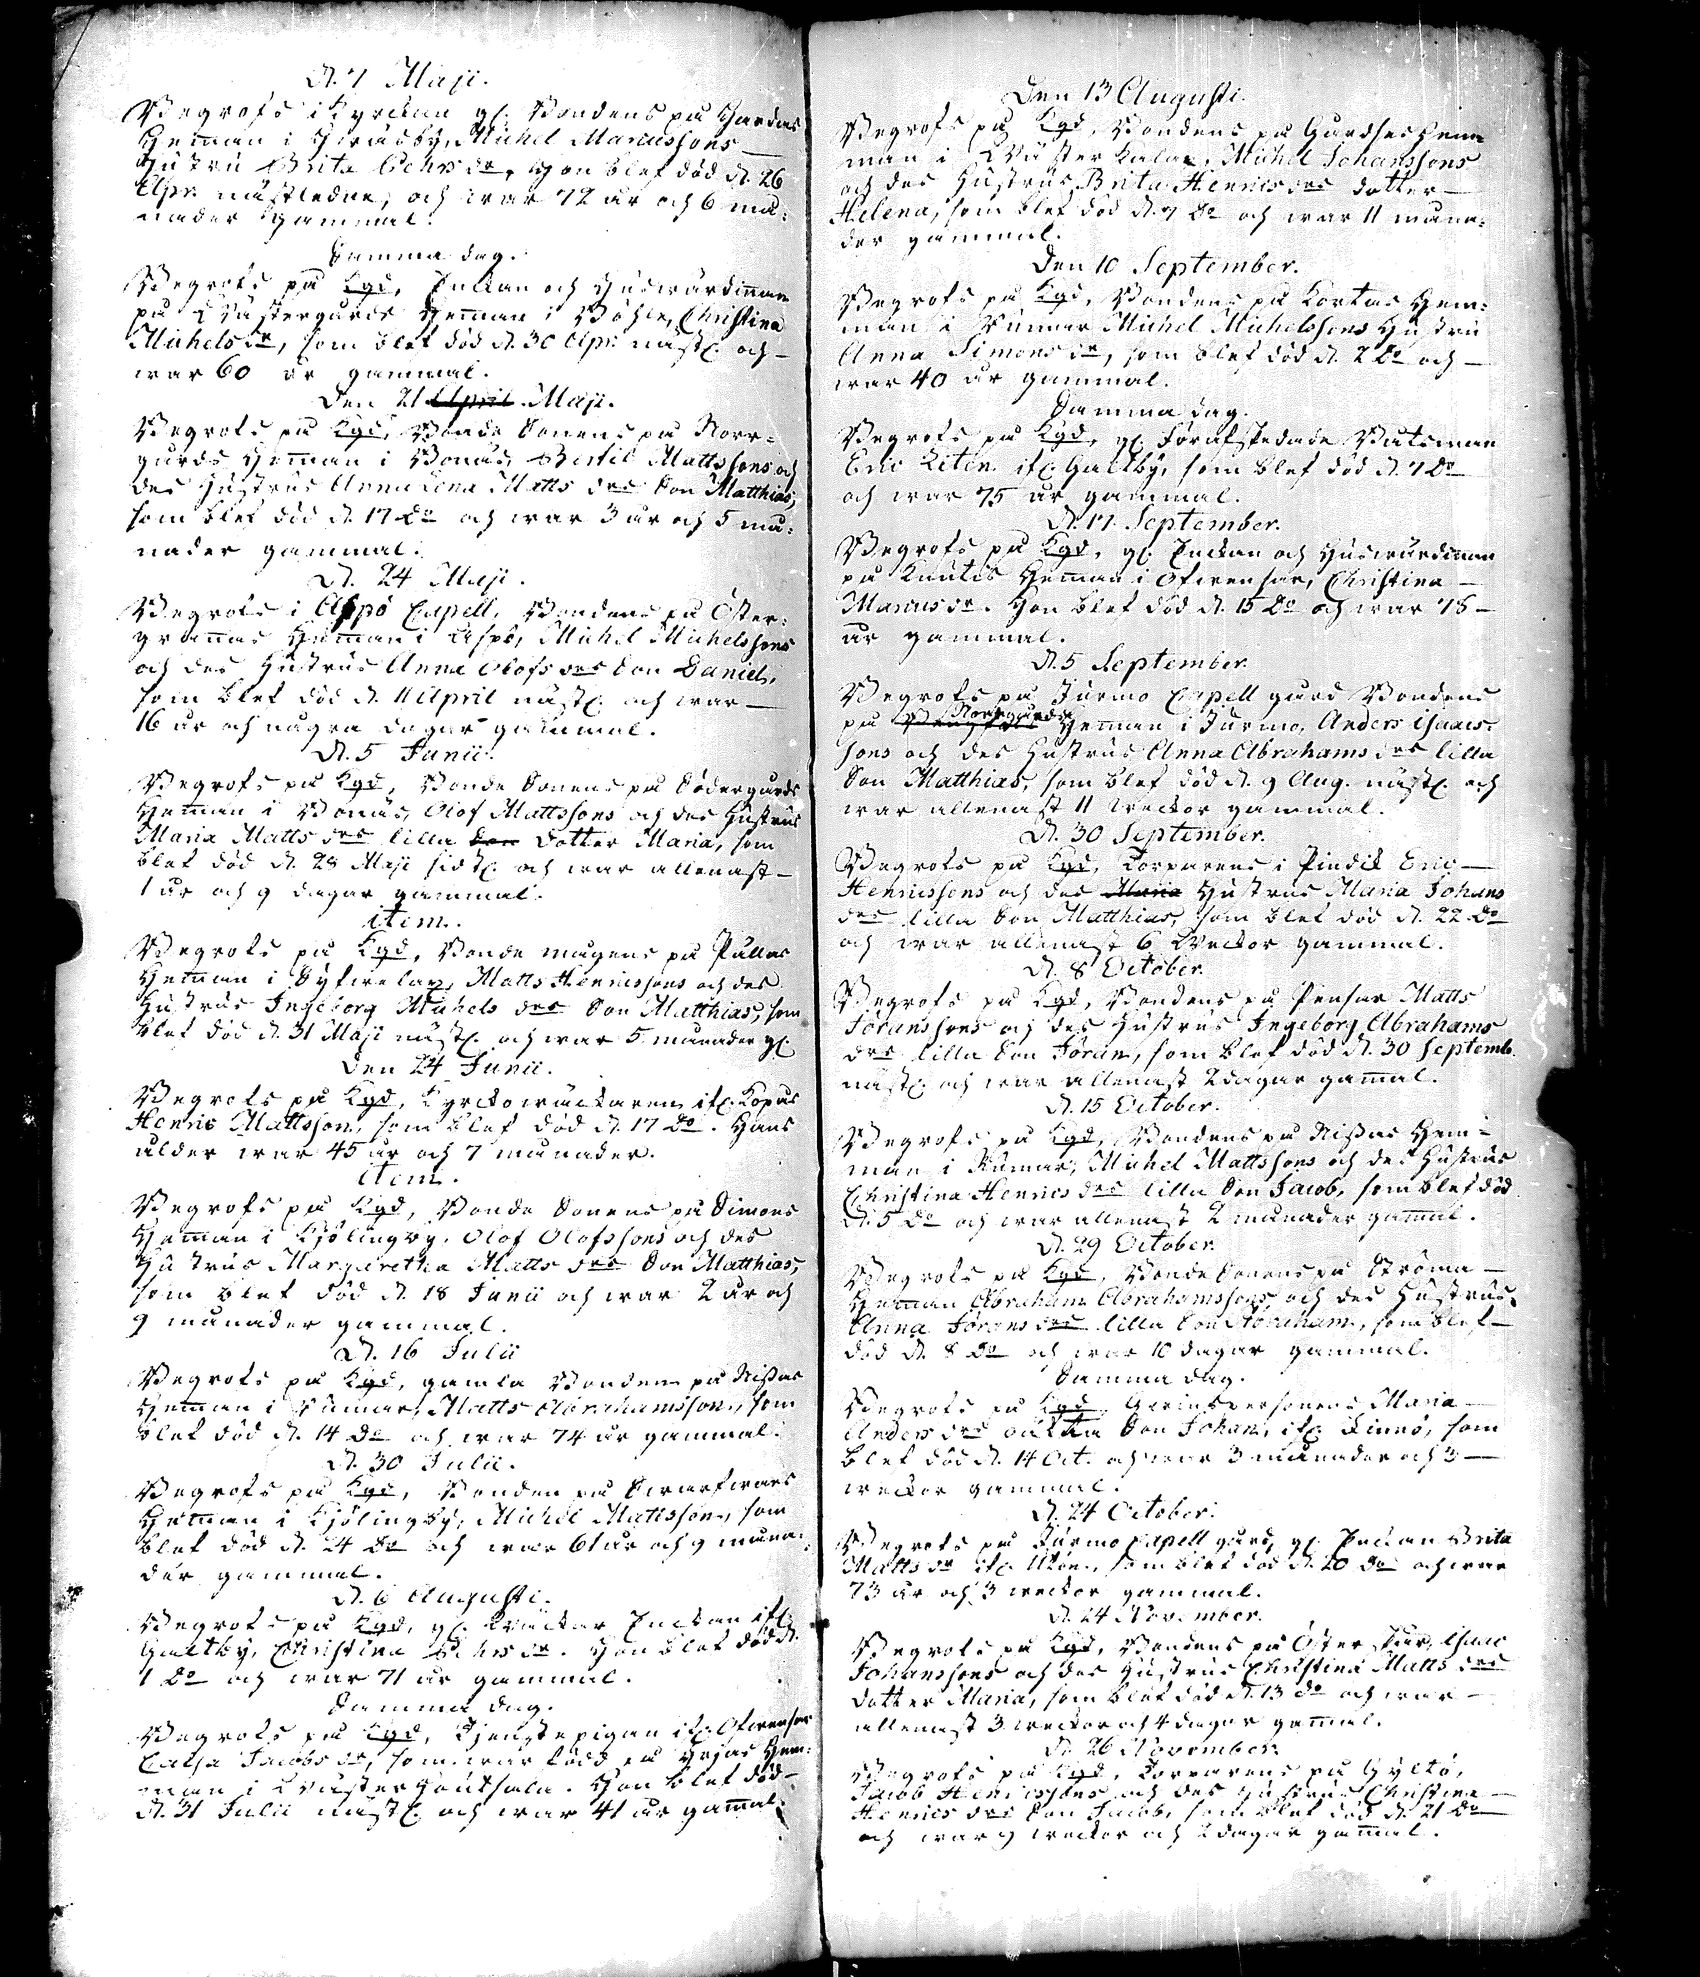 D. 7 Maji.
Begrofs i Kyrckan gl. Bondens på
Heman i Michel Marcussons
Hustru Brita Pehrs dr, Hon blef död d. 26
Apr. nästledne, och war 72 år och 6 må-
nader gammal.
Samma dag.
Begrofs på Kgd, Enkan och Huswärdinnan
på Wästergårds Heman i Böhle, Christina
Michels dr, som blef död d. 30 Apr. nästl. och
war 60 år gammal.
Den 21 April Maji.
Begrofs på Kgd, Bonde Sonens på Norr-
gårds Heman i Bonäs, Bertil Mattssons och
des Hustrus Anna Lena Matts drs Son Matthias,
som blef död d. 17 do och war 3 år och 5 må-
nader gammal.
D. 24 Maji.
Begrofs i Aspö Capell, Bondens på Öster-
Heman i Aspö, Michel Michelssons
och des Hustrus Anna Olofs drs Son Daniel,
som blef död d. 11 April nästl. och war
16 år och några dagar gammal.
D. 5 Junii.
Begrofs på Kgd, Bonde Sonens på Södergårds
Heman i Bonäs, Olof Mattssons och des Hustrus
Maria Matts drs lilla Son Dotter Maria, som
blef död d. 28 Maji sidstl. och war allenast
1 år och 9 dagar gammal.
item.
Begrofs på Kgd, Bonde mågens på Pellas
Heman i Matts Henricssons och des
Hustrus Ingeborg Michels drs Son Matthias, som
blef död d. 31 Maji nästl. och war 5 månader gl.
Den 24 Junii.
Begrofs på Kgd, Kyrckowäcktaren ifr. Kopas
Henric Mattsson, som blef död d. 17 do. Hans
ålder war 45 år och 7 månader.
item.
Begrofs på Kgd, Bonde Sonens på Simons
Heman i Kjölingby, Olof Olofssons och des
Hustrus Margaretha Matts drs Son Matthias,
som blef död d. 18 Junii och war 2 år och
9 månader gammal.
D. 16 Julii
Begrofs på Kgd, gamla Bonden på Nissas
Heman i Rumar, Matts Abrahamsson, som
blef död d. 14 do och war 74 år gammal.
D. 30 Julii.
Begrofs på Kgd, Bonden på Swarfwars
Heman i Kjölingby, Michel Mattsson, som
blef död d. 24 do och war 61 år och 9 måna-
der gammal.
D. 6 Augusti.
Begrofs på Kgd, gl. Enckan ifr.
Galtby, Christina Pehrs dr. Hon blef död d.
1 do och war 71 år gammal.
Samma dag.
Begrofs på Kgd, Tjenstepigan ifr. Ofwensor
Caisa Jacobs dr, som war född på Hem-
man i Wäster. Hon blef död
d. 31 Julii nästl. och war 41 år gamal.
Den 13 Augusti.
Begrofs på Kgd, Bondens på Hem
man i Wäster Michel Johanssons
och des Hustrus Brita Henrics drs dotter
Helena, som blef död d. 7 do och war 11 måna-
der gammal.
Den 10 September.
Begrofs på Kgd, Bondens på Kortas Hem-
man i Rumar Michel Michelssons Hustru
Anna Simons dr, som blef död d. 2 do och
war 40 år gammal.
Samma dag.
Begrofs på Kgd, gl. förafskedade Båtsman
Eric Liten ifr. Galtby, som blef död d. 7 do
och war 75 år gammal.
D. 17 September.
Begrofs på Kgd, gl. Enckan och Huswärdinnan
på Knutis Heman i Ofwensor, Christina
Marcus dr. Hon blef död d. 15 do och war 78
år gammal.
D. 5 September.
Begrofs på Jurmo Capell gård Bondens
på Norrgårds Heman i Jurmo, Anders Isaacs-
sons och des Hustrus Anna Abrahams drs lilla
Son Matthias, som blef död d. 9 Aug. nästl. och
war allenast 11 weckor gammal.
D. 30 September.
Begrofs på Kgd, Torparens i Pindik Eric
Henricssons och des Maria Hustrus Maria Johans
drs lilla Son Matthias, som blef död d. 22 do
och war allenast 6 Weckor gammal.
D. 8 October.
Begrofs på Kgd, Bondens på Pensar Matts
Joranssons och des Hustrus Ingeborg Abrahams
drs lilla Son Joran, som blef död d. 30 Septemb.
nästl. och war allenast 2 dagar gamal.
D. 15 October.
Begrofs på Kgd, Bondens på Nissas Hem-
man i Rumar, Michel Mattssons och des Hustrus
Christina Henrics drs lilla Son Jacob, som blef död
d. 5 do och war allenast 2 månader gamal.
D. 29 October.
Begrofs på Kgd, Bonde Sonens på Ströma
Heman Abraham Abrahamssons och des Hustrus
Anna Jorans drs lilla Son Abraham, som blef
död d. 8 do och war 10 dagar gammal.
Samma dag.
Begrofs på Kgd, Maria
Anders drs Son Johan, ifr. Finnö, som
blef död d. 14 Oct. och war 3 månader och 3
weckor gammal.
D. 24 October.
Begrofs på Jurmo Capell gård, gl. Enckan Brita
Matts dr ifr. Utön, som blef död d. 20 do och war
73 år och 3 weckor gammal.
D. 24 November.
Begrofs på Kgd, Bondens på Öster Isaac
Johanssons och des Hustrus Christina Matts drs
dotter Maria, som blef död d. 13 do och war
allenast 3 weckor och 4 dagar gamal.
D. 26 November.
Begrofs på Kgd, Torparens på Gyltö,
Jacob Henricssons och des Hustrus Christina
Henrics drs Son Jacob, som blef död d. 21 do
och war 9 weckor och 2 dagar gamal.